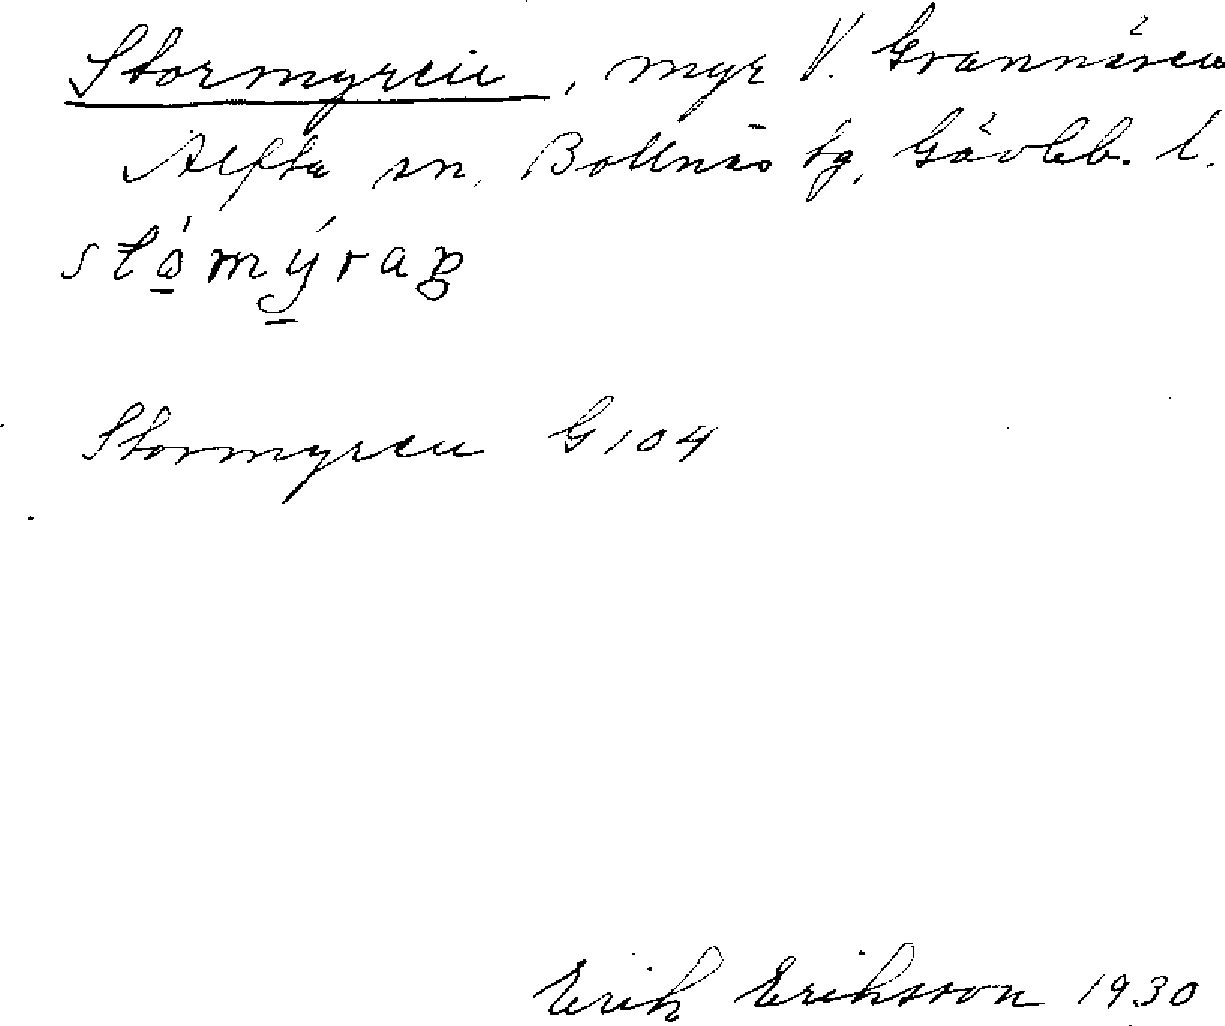 Stormyren, myr V. Grannäsen
Alfta sn. Bollnäs tg, Gävleb. l.
stómýraɲ
Stormyren G 104
Erik Eriksson 1930